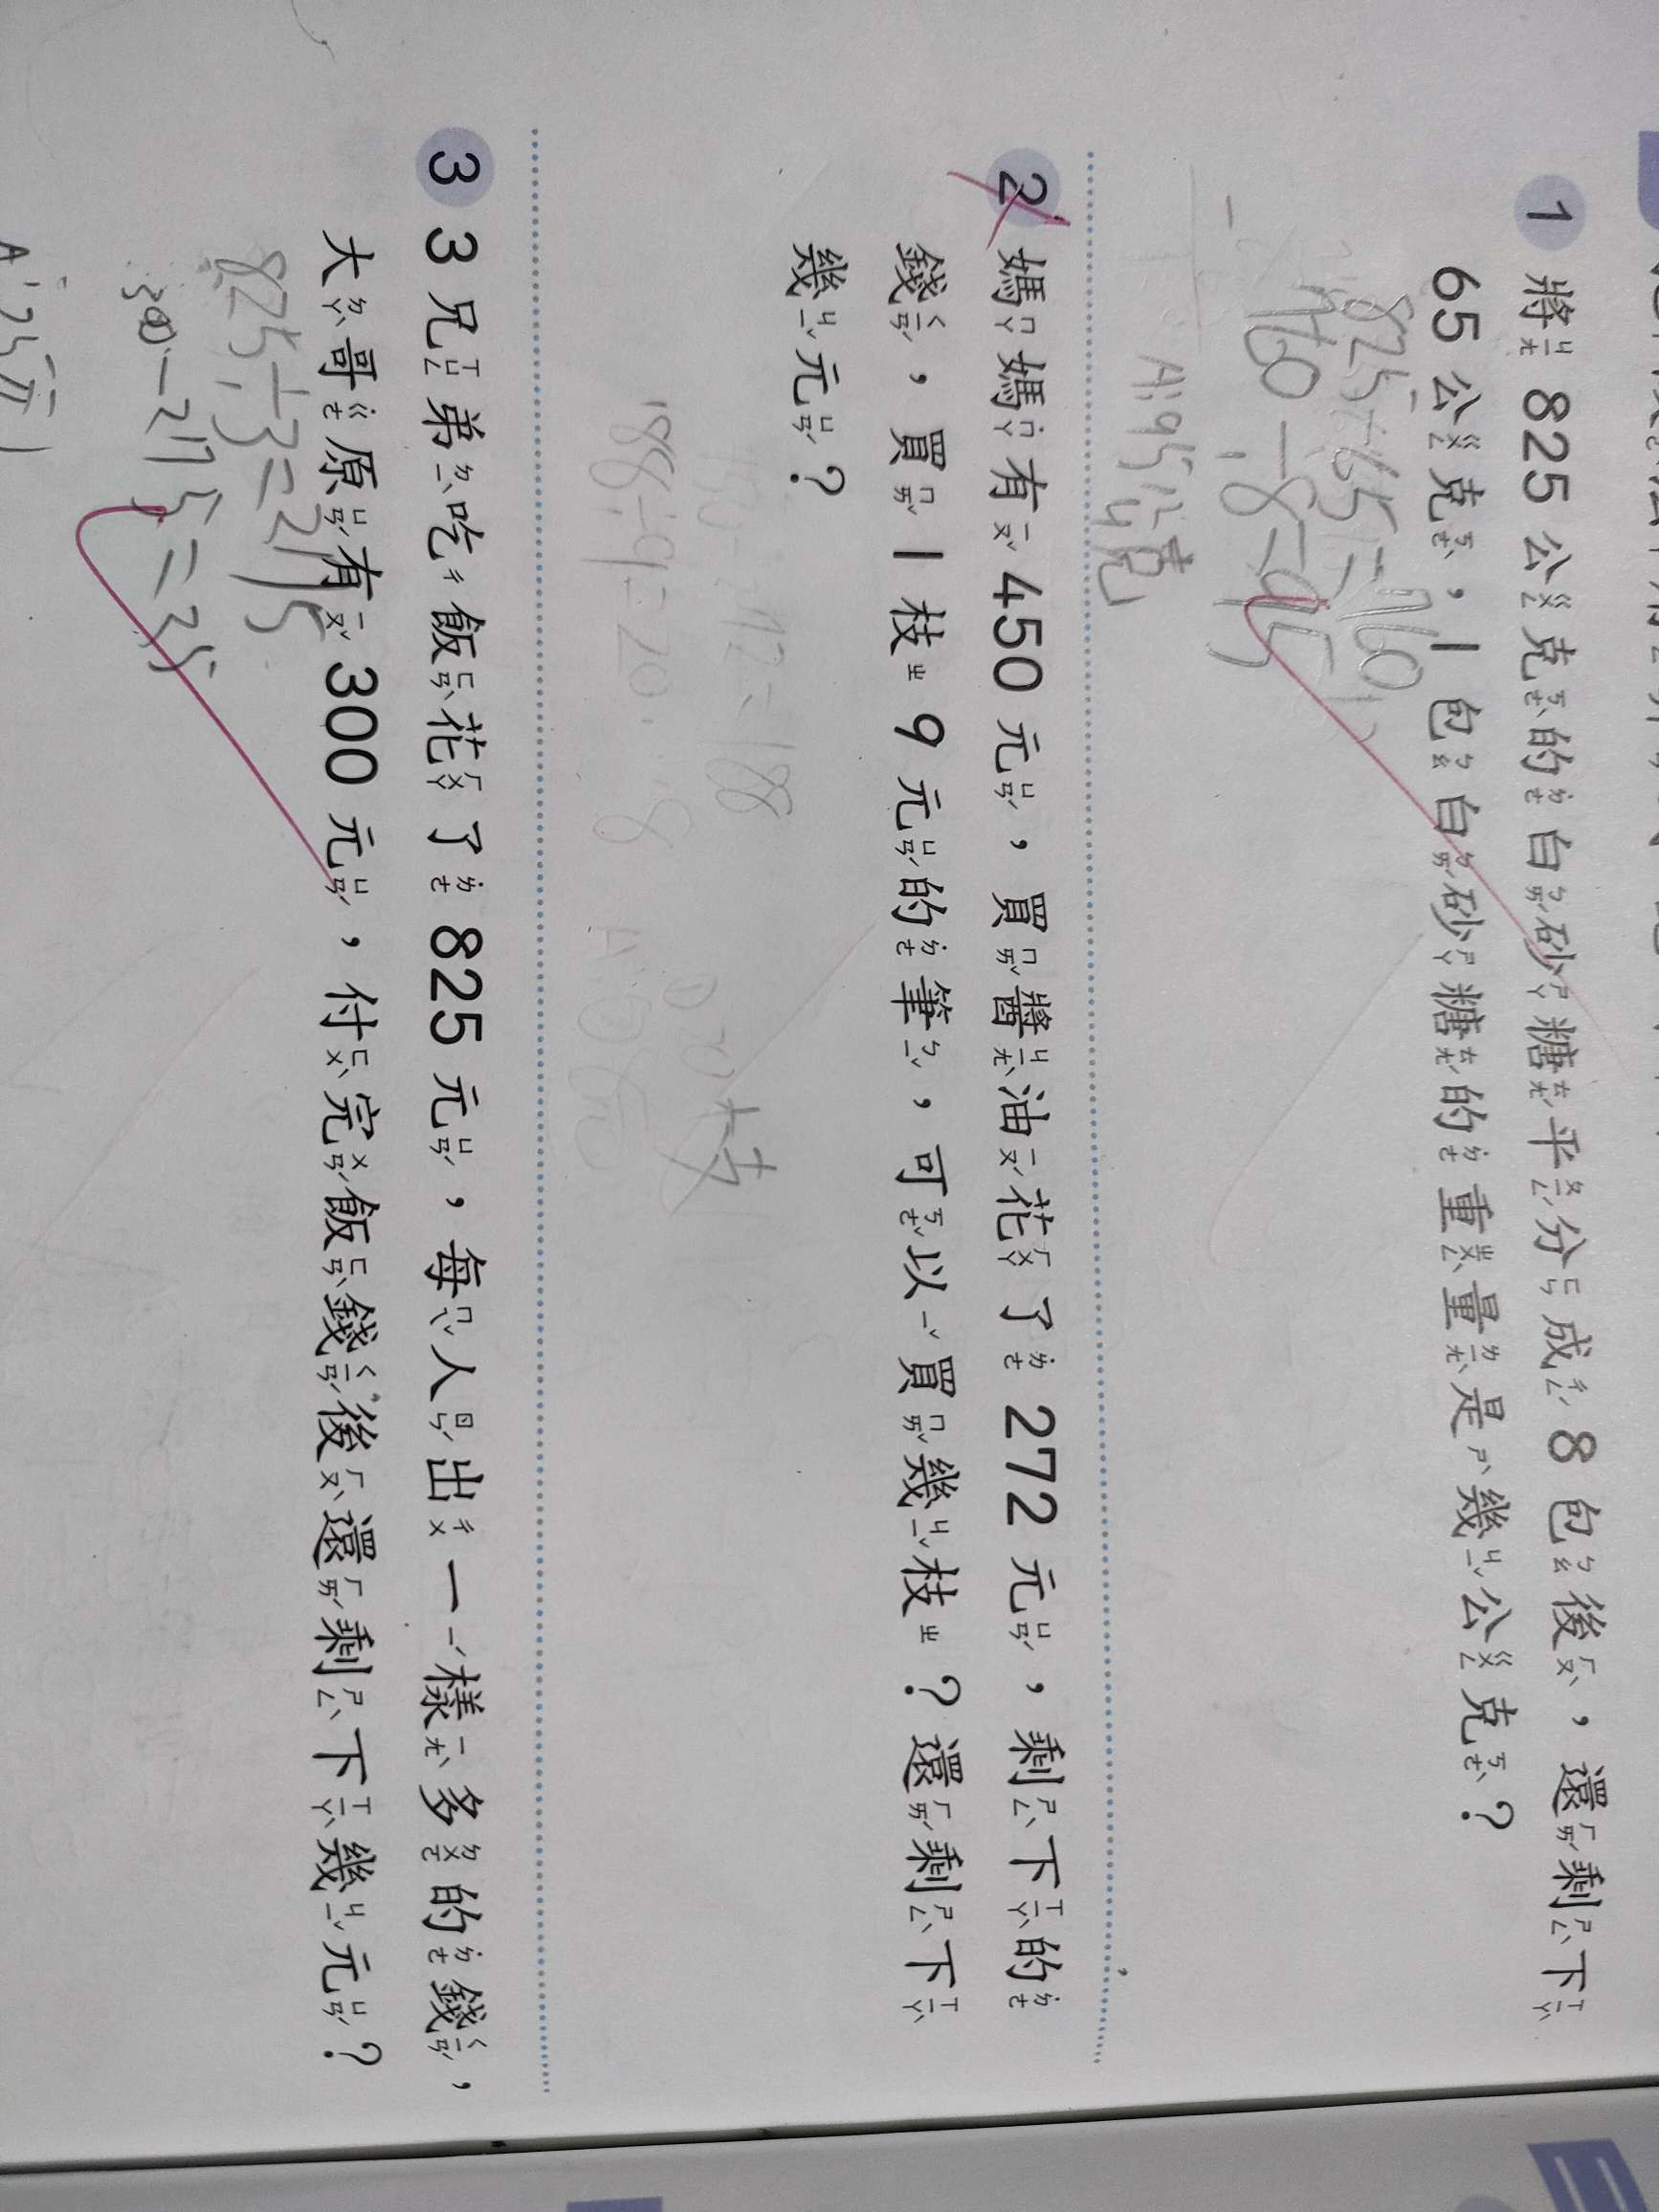 1 將 825 公克的白砂糖平分成 8 包後，還剩下
65 公克，1 包白砂糖的重量是幾公克？
825-65=760
760÷8=95
A:95公克
2 媽媽有 450 元，買醬油花了 272 元，剩下的
錢，買 1 枝 9 元的筆，可以買幾枝？還剩下
幾元？
188÷9=20…8
3 3 兄弟吃飯花了 825 元，每人出一樣多的錢，
大哥原有 300 元，付完飯錢後還剩下幾元？
825÷3=275
300-275=25
A:25元